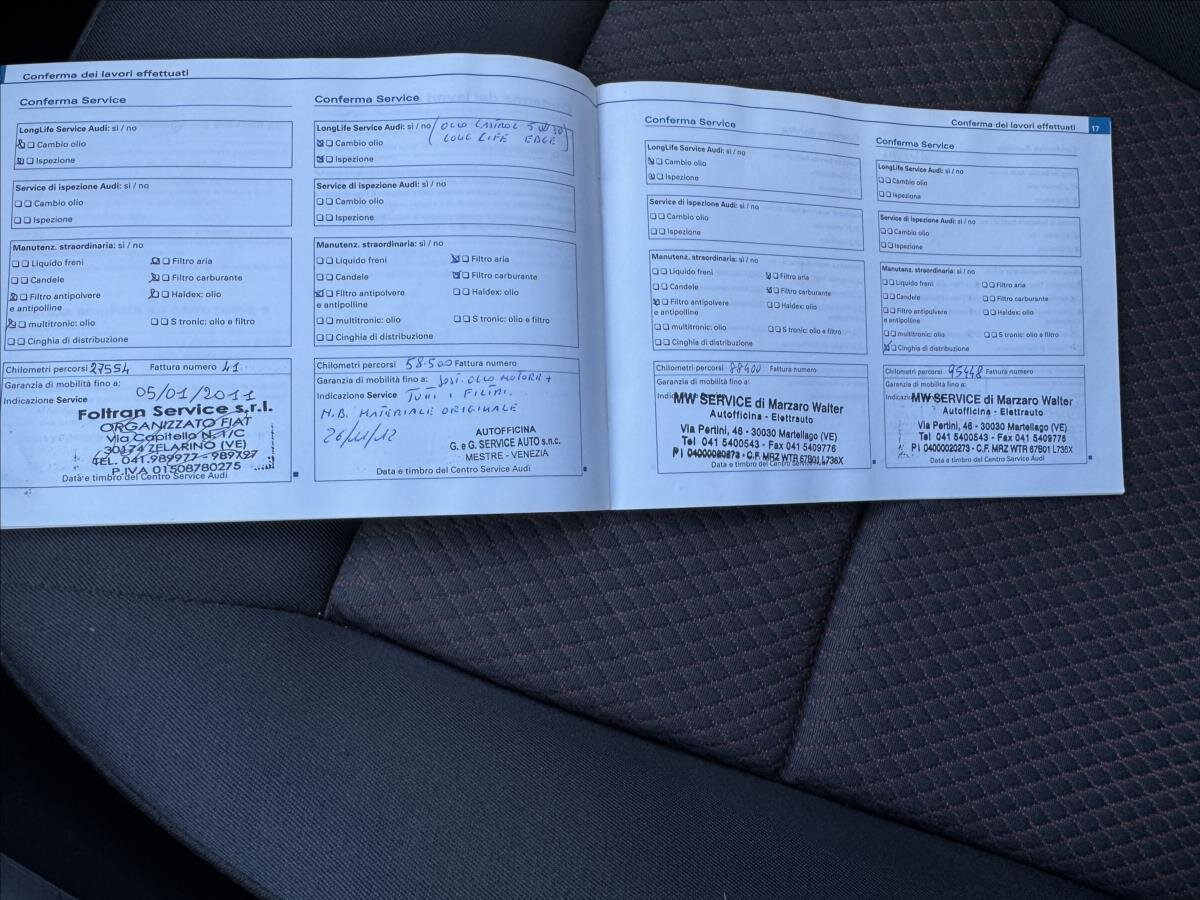 Conferma dei lavori effettuati
Conferma Service
LongLife Service Audi: sì / no
Cambio olio
Ispezione
Service di ispezione Audi: sì / no
Cambio olio
Ispezione
Manutenz. straordinaria: sì / no
Liquido freni
Filtro aria
Candele
Filtro carburante
Filtro antipolvere
e antipolline
Haldex: olio
multitronic: olio
S tronic: olio e filtro
Cinghia di distribuzione
Chilometri percorsi 27554 Fattura numero 41
Garanzia di mobilità fino a:
05/01/2011
Indicazione Service
Foltran Service s.r.l.
ORGANIZZATO FIAT
Via Capitello N. 1/C
30174 ZELARINO (VE)
TEL. 041.989977 - 989727
P.IVA 01508780275
Data e timbro del Centro Service Audi
Conferma Service
LongLife Service Audi: sì / no (OLIO CASTROL 5W30
LONG LIFE EDGE)
Cambio olio
Ispezione
Service di ispezione Audi: sì / no
Cambio olio
Ispezione
Manutenz. straordinaria: sì / no
Liquido freni
Filtro aria
Candele
Filtro carburante
Filtro antipolvere
e antipolline
Haldex: olio
multitronic: olio
S tronic: olio e filtro
Cinghia di distribuzione
Chilometri percorsi 58.500 Fattura numero
Garanzia di mobilità fino a: SOST. OLIO MOTORE +
Indicazione Service TUTTI I FILTRI.
N.B. MATERIALE ORIGINALE
26/11/12
AUTOFFICINA
G. e G. SERVICE AUTO s.n.c.
MESTRE - VENEZIA
Data e timbro del Centro Service Audi
Conferma dei lavori effettuati 17
Conferma Service
LongLife Service Audi: sì / no
Cambio olio
Ispezione
Service di ispezione Audi: sì / no
Cambio olio
Ispezione
Manutenz. straordinaria: sì / no
Liquido freni
Filtro aria
Candele
Filtro carburante
Filtro antipolvere
e antipolline
Haldex: olio
multitronic: olio
S tronic: olio e filtro
Cinghia di distribuzione
Chilometri percorsi 88400 Fattura numero
Garanzia di mobilità fino a:
MW SERVICE di Marzaro Walter
Autofficina - Elettrauto
Via Pertini, 46 - 30030 Martellago (VE)
Tel 041 5400543 - Fax 041 5409776
P I 04000020273 - C.F. MRZ WTR 67B01 L736X
Data e timbro del Centro Service Audi
Conferma Service
LongLife Service Audi: sì / no
Cambio olio
Ispezione
Service di ispezione Audi: sì / no
Cambio olio
Ispezione
Manutenz. straordinaria: sì / no
Liquido freni
Filtro aria
Candele
Filtro carburante
Filtro antipolvere
e antipolline
Haldex: olio
multitronic: olio
S tronic: olio e filtro
Cinghia di distribuzione
Chilometri percorsi 95448 Fattura numero
Garanzia di mobilità fino a:
MW SERVICE di Marzaro Walter
Autofficina - Elettrauto
Via Pertini, 46 - 30030 Martellago (VE)
Tel 041 5400543 - Fax 041 5409776
P I 04000020273 - C.F. MRZ WTR 67B01 L736X
Data e timbro del Centro Service Audi